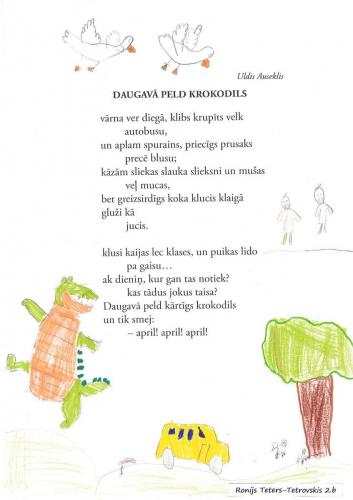 Uldis Auseklis
DAUGAVĀ PELD KROKODILS
vārna ver diegā, klibs krupīts velk
autobusu,
un aplam spurains, priecīgs prusaks
precē blusu;
kāzām sliekas slauka slieksni un mušas
veļ mucas,
bet greizsirdīgs koka klucis klaigā
gluži kā
jucis.
klusi kaijas lec klases, un puikas lido
pa gaisu…
ak dieniņ, kur gan tas notiek?
kas tādus jokus taisa?
Daugavā peld kārtīgs krokodils
un tik smej:
– april! april! april!
Ronijs Teters-Tetrovskis 2.b